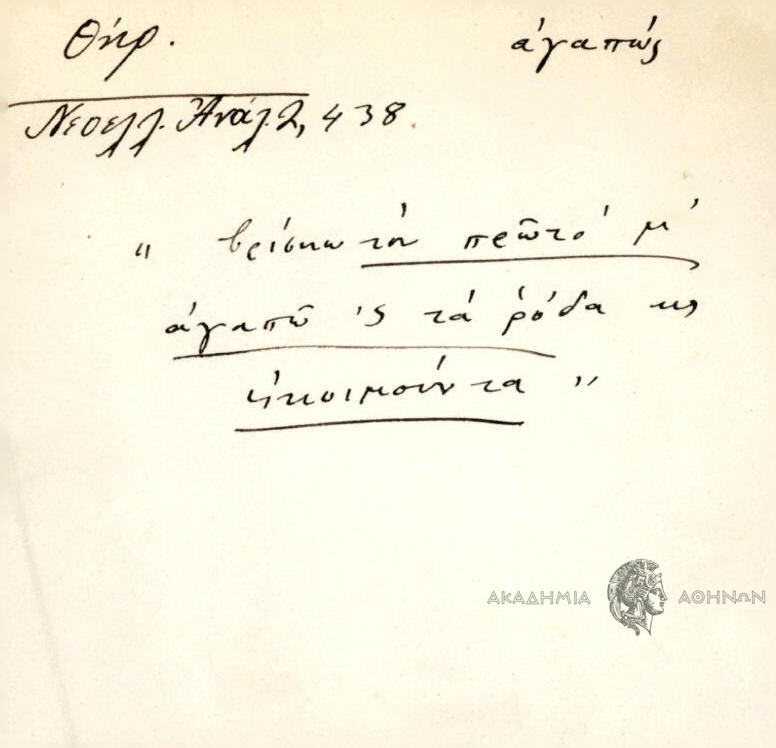 Θήρ. ἀγαπώς
Νεοελλ. Ἀνάλ. 2, 438.
" βρίσκω τὸν πρῶτό μ'
ἀγαπῶ 'ς τὰ ῥόδα κι
ἠκοιμούντα "
ΑΚΑΔΗΜΙΑ ΑΘΗΝΩΝ